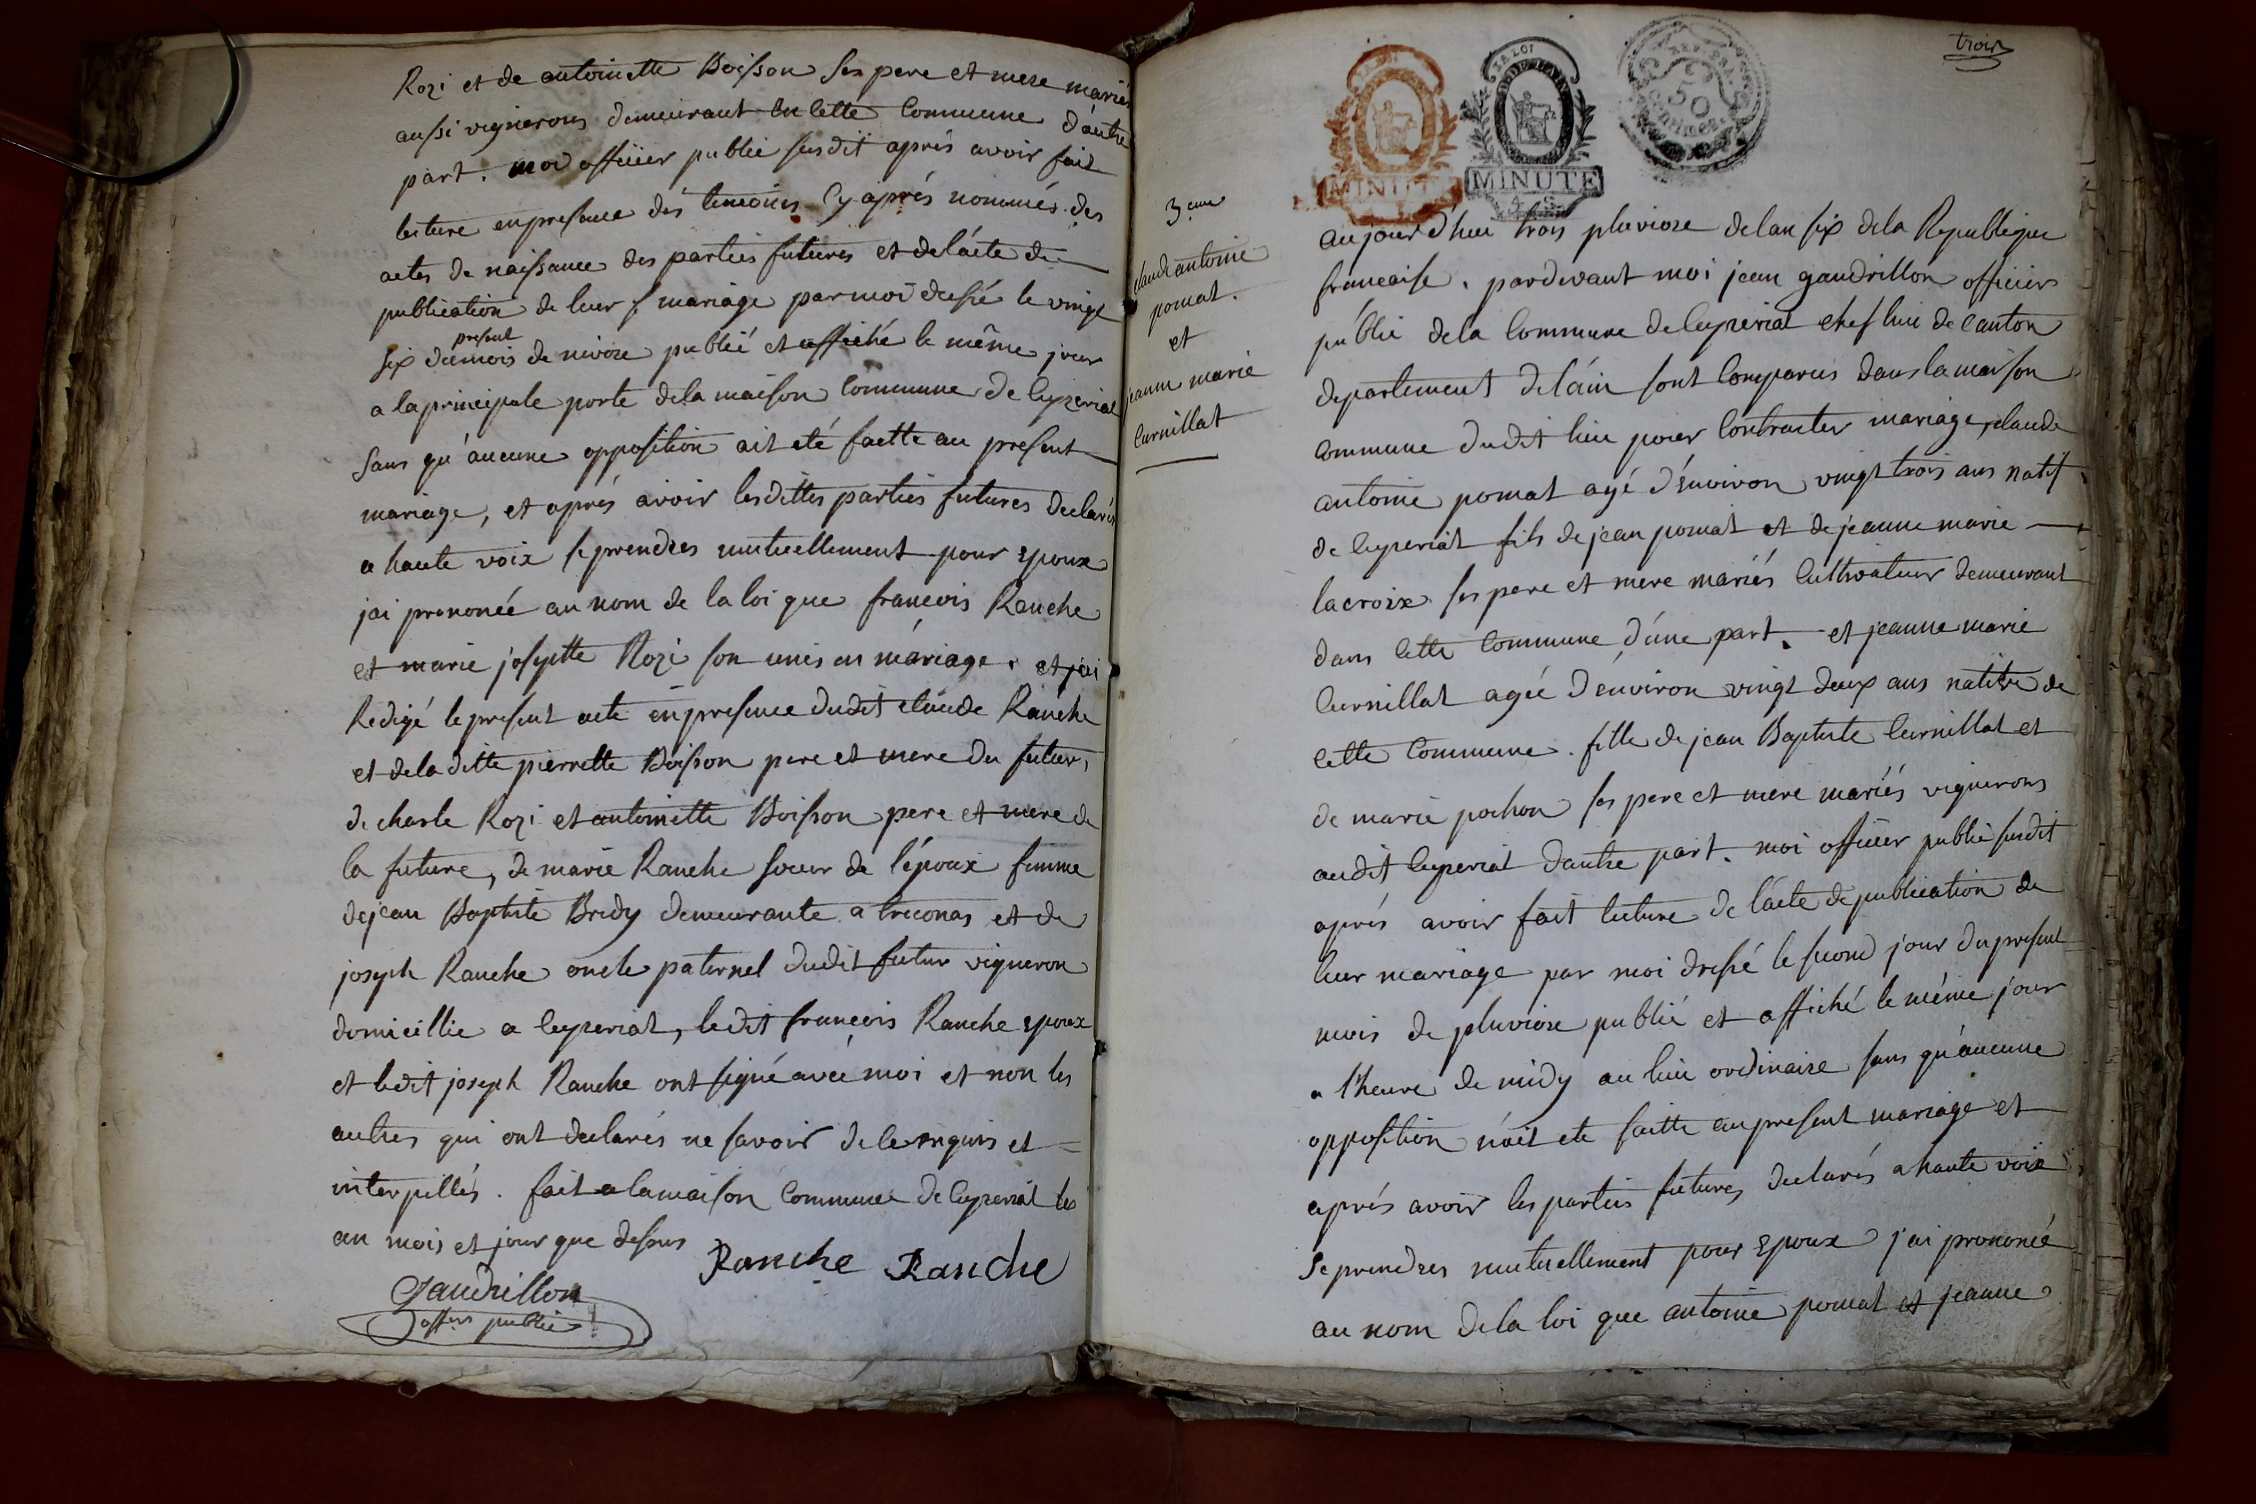 Rozi et de antoinette Boisson ses pere et mere mariés
aussi vignerons demeurant en cette Commune d'autre
part. moi officier public susdit aprés avoir fait
lecture en presence des temoins Cy aprés nommés des
actes de naissance des parties futures et de lácte de
publication de leur mariage par moi dressé le vingt
present
six du mois de nivose publié et affiché le même jour
a la principale porte de la maison Commune de Ceyzeriat
sans qu'aucune opposition ait eté faitte au present
mariage, et aprés avoir les dittes parties futures declarés
a haute voix se prendres mutuellement pour epoux
jai prononcé au nom de la loi que francois Ranche
et marie josephte Rozi son unis en mariage. et jai
Redigé le present acte en presence dudit claude Ranche
et de la ditte pierrette Boisson pere et mere du futur,
de charle Rozi et antoinette Boisson pere et mere de
la future, de marie Ranche soeur de l'époux femme
de jean Baptiste Bridy demeurante a treconas et de
joseph Ranche oncle paternel dudit futur vigneron
domicillié a Ceyzeriat, ledit francois Ranche epoux
et ledit joseph Ranche ont signé avec moi et non les
autres qui ont declarés ne savoir de ce enquis et
interpellés. fait a la maison Commune de Ceyzeriat les
an mois et jour que dessus
Ranche Ranche
Gaudrillon
offier public
trois
LA LOI
MINUTE
LA LOI
MINUTE
50
Centimes
3eme
claude antoine
pomat.
et
jeanne marie
Curnillat
aujourd'hui trois pluviose de lan six de la Republique
francaise. pardevant moi jean gaudrillon officier
public de la Commune de Ceyzeriat chef lieu de canton
departement de láin sont Comparus dans la maison
Commune dudit lieu pour Contracter mariage, claude
antoine pomat agé d'environ vingt trois ans natif
de Ceyzeriat fils de jean pomat et de jeanne marie
lacroix ses pere et mere mariés Cultivateur demeurant
dans cette Commune d'une part. et jeanne marie
Curnillat agée d'environ vingt deux ans native de
cette Commune. fille de jean Baptiste Curnillat et
de marie pochon ses pere et mere mariés vignerons
audit Ceyzeriat dautre part. moi officier public susdit
aprés avoir fait lecture de lácte de publication de
leur mariage par moi dressé le second jour du present
mois de pluviose publié et affiché le même jour
a l'heure de midy au lieu ordinaire sans qu'aucune
opposition n'ait eté faitte au present mariage et
aprés avoir les parties futures declarés a haute voix
se prendres mutuellement pour epoux jai prononcé
au nom de la loi que antoine pomat et jeanne